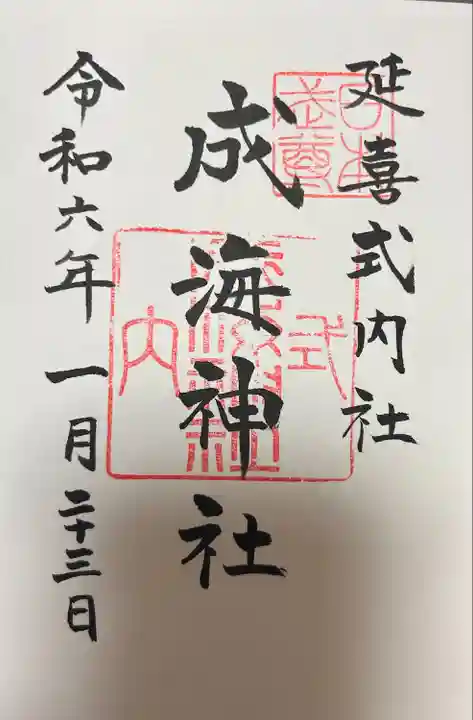 延喜式内社
成海神社
令和六年一月二十三日
式
内